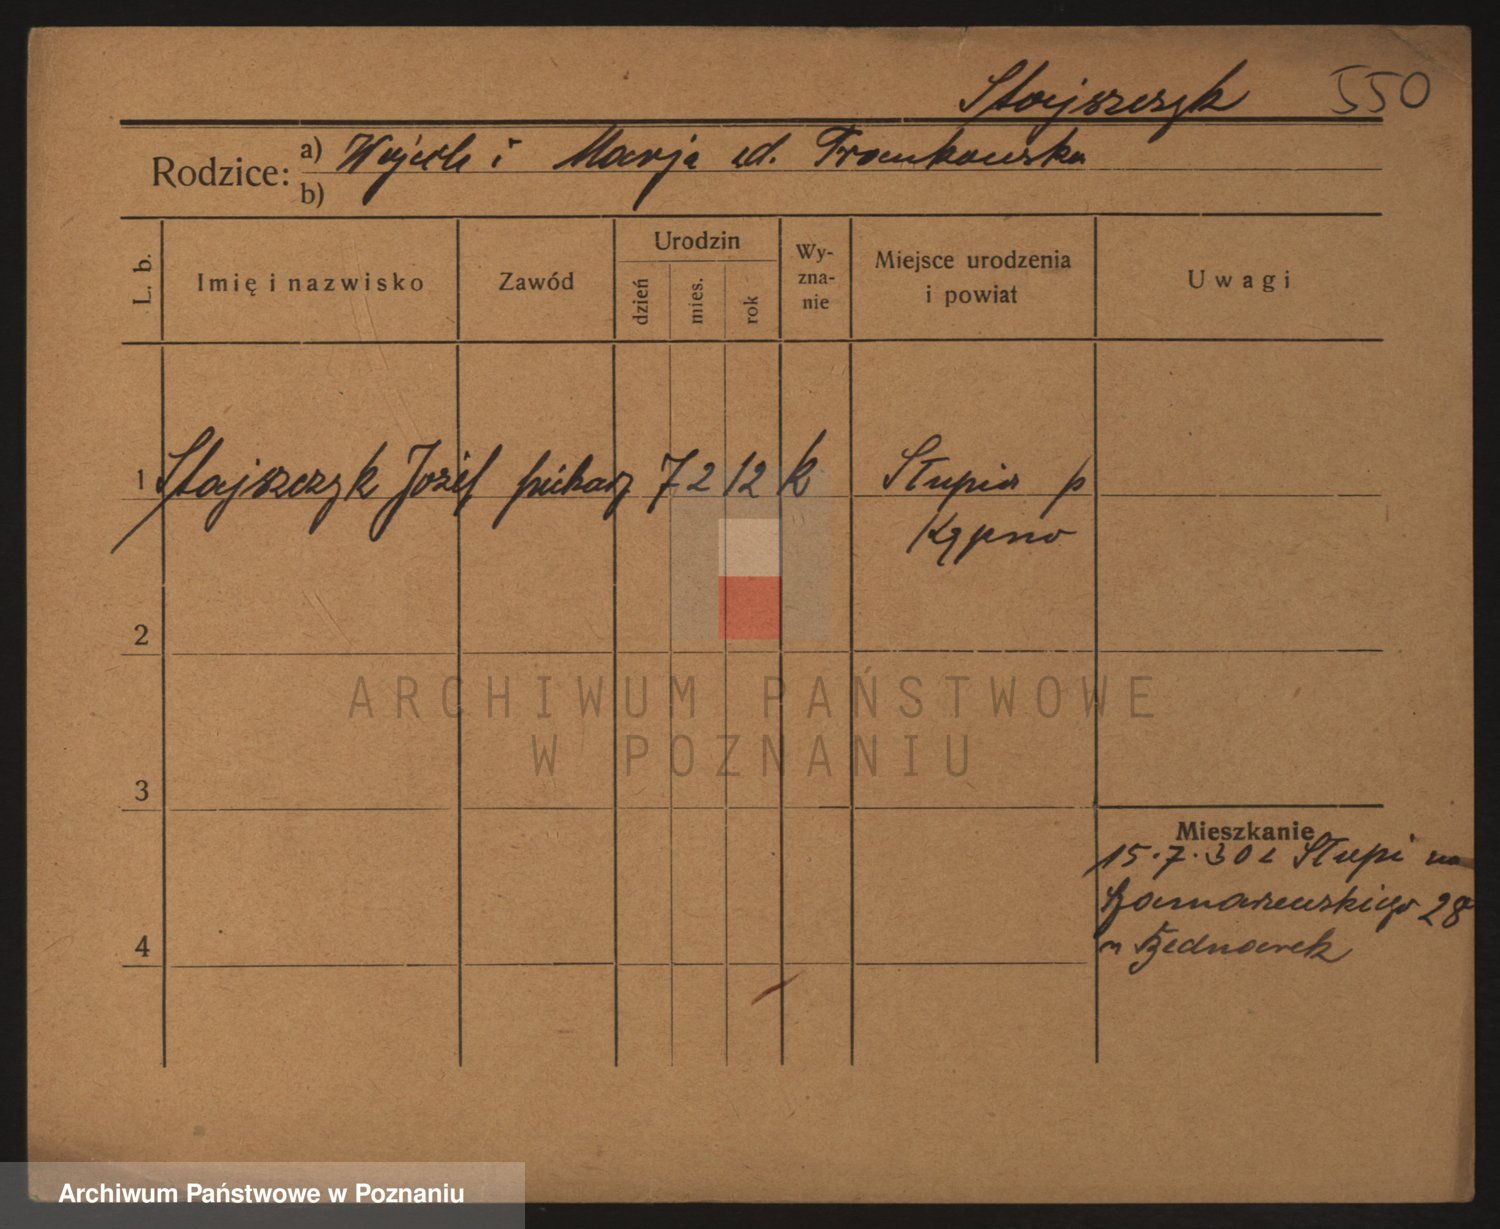 Stajszczyk 550
Rodzice: a) Wojciech i Marja ud. Frankowska
b)
L. b. Imię i nazwisko Zawód Urodzin dzień mies. rok Wy-zna-nie Miejsce urodzenia i powiat Uwagi
1 Stajszczyk Józef piekarz 7 2 12 k Słupia p
Kępno
2
3
4
Mieszkanie
15.7.30 z Słupi na
28
Bednarek
ARCHIWUM PAŃSTWOWE
W POZNANIU
Archiwum Państwowe w Poznaniu